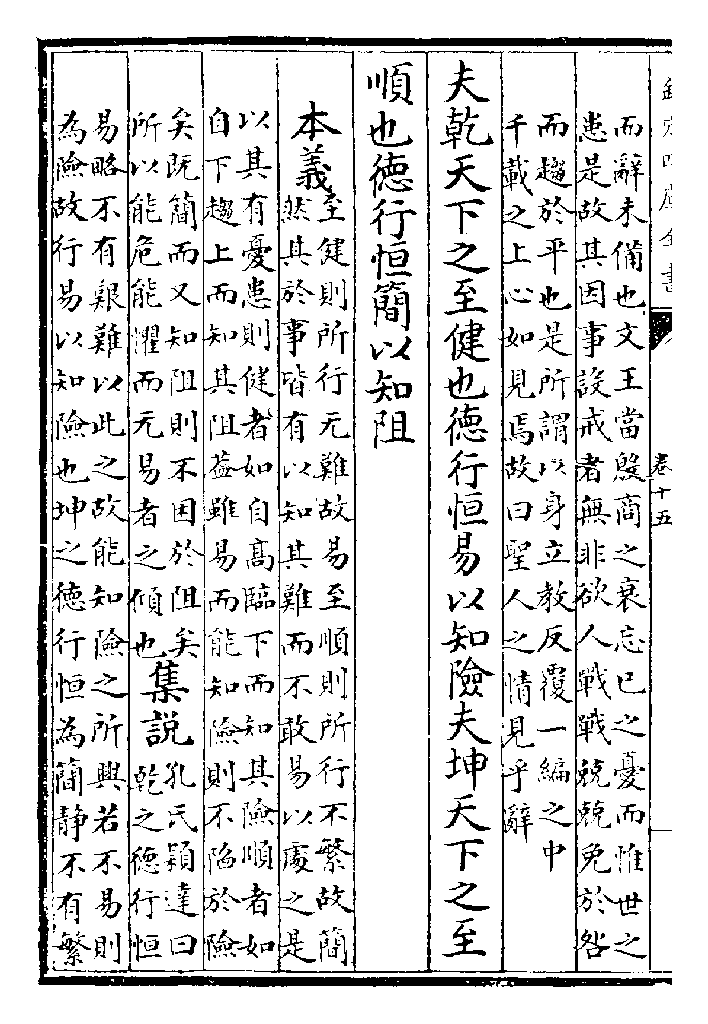 欽定四庫全書
卷十五
而辭未備也文王當殷商之衰忘己之憂而惟世之
患是故其因事設戒者無非欲人戰戰兢兢免於咎
而趨於平也是所謂以身立教反覆一編之中
千載之上心如見焉故曰聖人之情見乎辭
夫乾天下之至健也德行恒易以知險夫坤天下之至
順也德行恒簡以知阻
本義
至健則所行无難故易至順則所行不繁故簡
然其於事皆有以知其難而不敢易以處之是
以其有憂患則健者如自高臨下而知其險順者如
自下趨上而知其阻葢雖易而能知險則不陷於險
矣既簡而又知阻則不困於阻矣
所以能危能懼而无易者之傾也
集説
孔氏穎達曰
乾之德行恒
易略不有艱難以此之故能知險之所興若不易則
為險故行易以知險也坤之德行恒為簡静不有繁